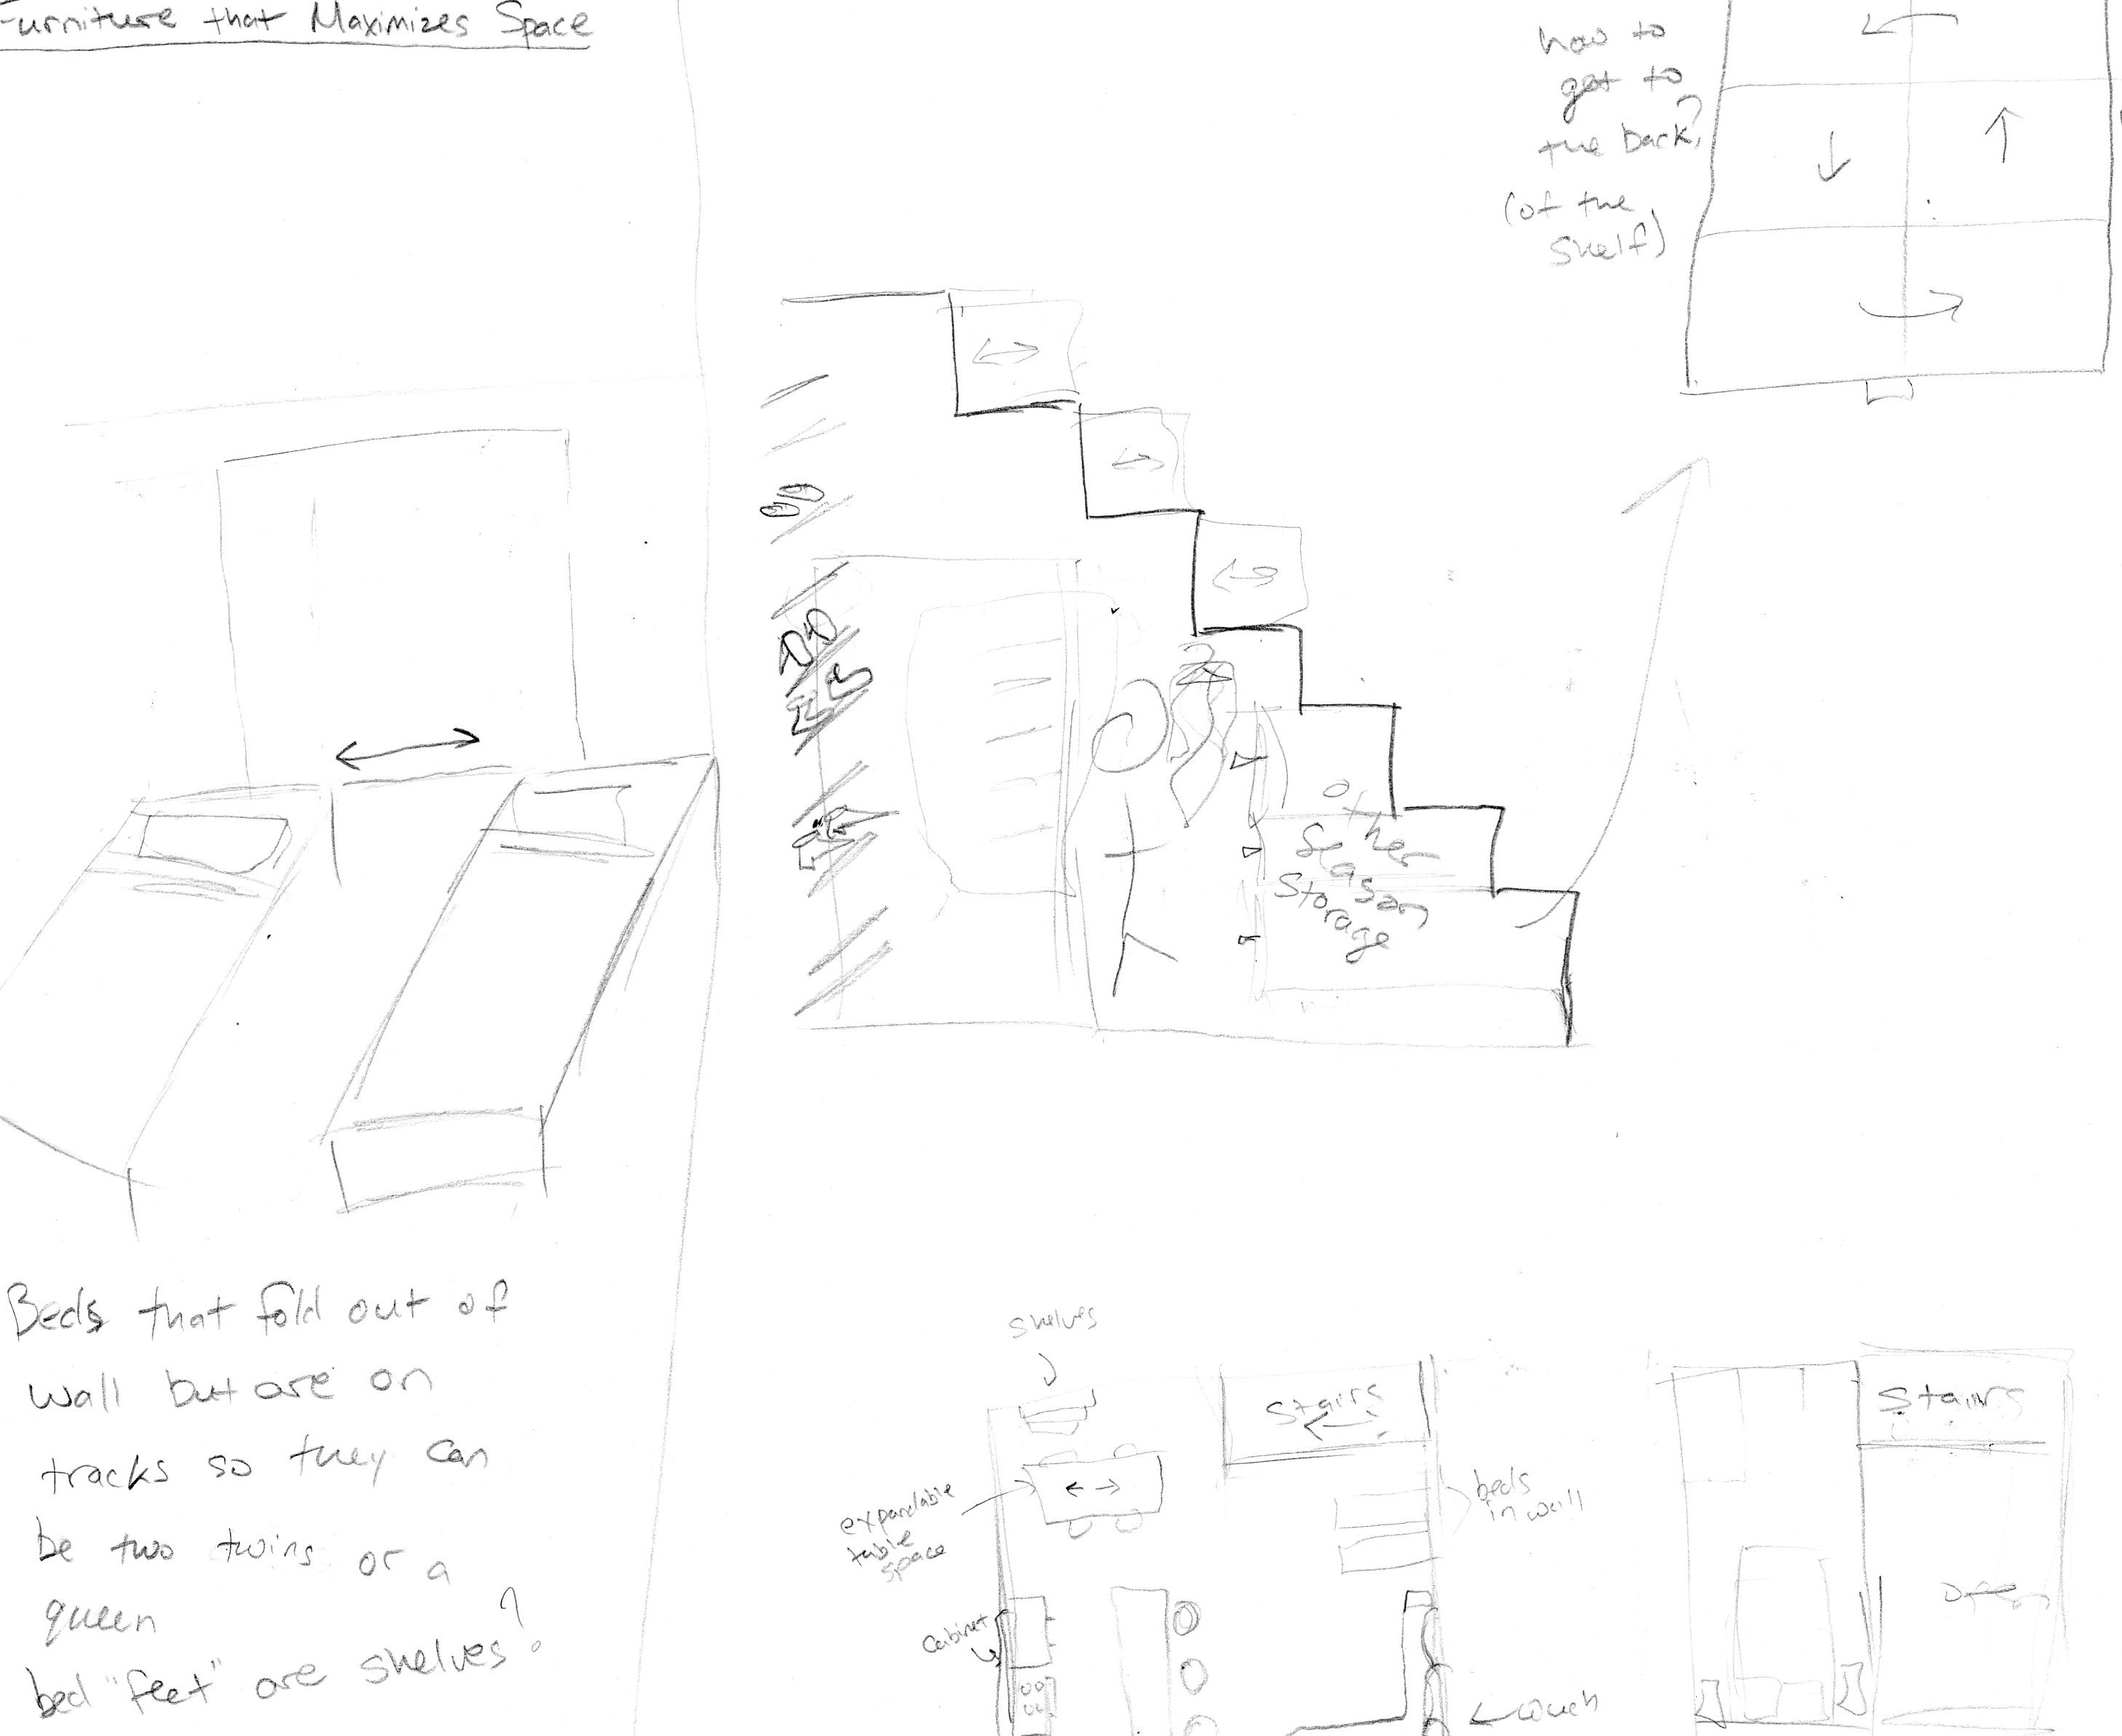 Furniture that Maximizes Space
how to
get to
the back?
(of the
shelf)
other
Season
Storage
Beds that fold out of
wall but are on
tracks so they can
be two twins or a
queen
bed "feet" are shelves?
shelves
Stairs
expandable
table
space
beds
in wall
Cabinet
couch
Stairs